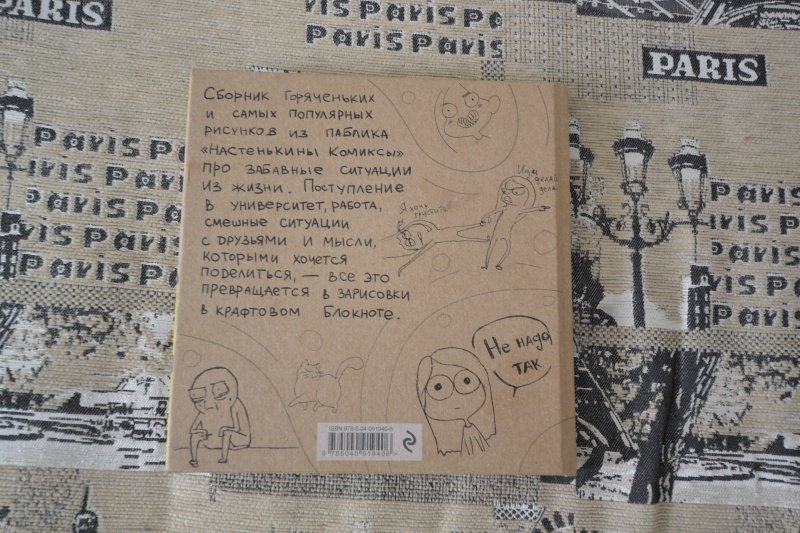 PARIS
Paris Paris Paris
Paris Paris
PARIS
Сборник горяченьких
и самых популярных
рисунков из паблика
«Настенькины комиксы»
про забавные ситуации
из жизни. Поступление
в университет, работа,
смешные ситуации
с друзьями и мысли,
которыми хочется
поделиться, — все это
превращается в зарисовки
в крафтовом блокноте.
Иди
делай
дела
Я хочу
грустить
Не надо
так